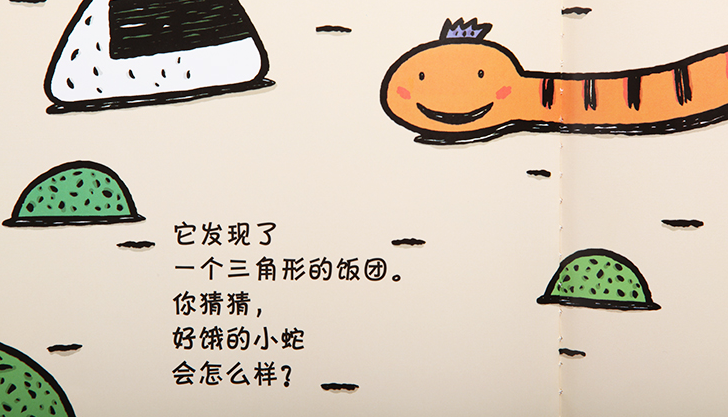 它发现了
一个三角形的饭团。
你猜猜，
好饿的小蛇
会怎么样？